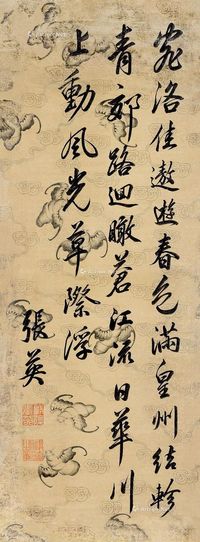 宛洛佳遨遊春色滿皇州結軫
青郊路迴瞰蒼江流日華川
上動風光草際浮
張英